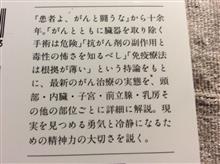 『患者よ、がんと闘うな』から十余
年。「がんとともに臓器を取り除く
手術は危険」「抗がん剤の副作用と
毒性の怖さを知るべし」「免疫療法
は根拠が薄い」という持論をもと
に、最新のがん治療の実態を、頭
部・内臓・子宮・前立腺・乳房そ
の他の部位ごとに詳細に解説。現
実を見つめる勇気と冷静になるた
めの精神力の大切さを説く。